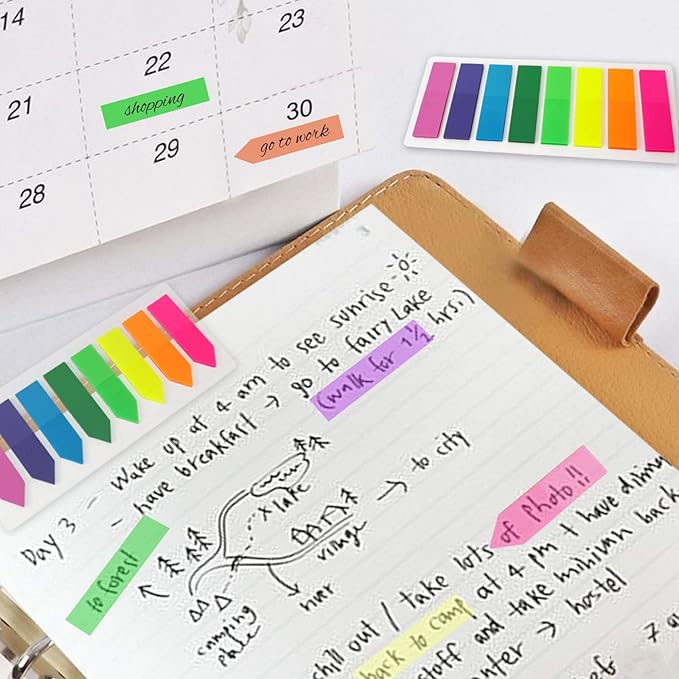 14
22
23
21
shopping
30
go to work
28
29
Day 3 - Wake up at 4 am to see sunrise
- have breakfast → go to fairy Lake
(walk for 1½ hrs.)
→ to city
x lake
village
to forest
river
camping
chill out / take lots of photo!!
back to camp at 4 pm + have
stuff and take minivan back
→ hostel
7